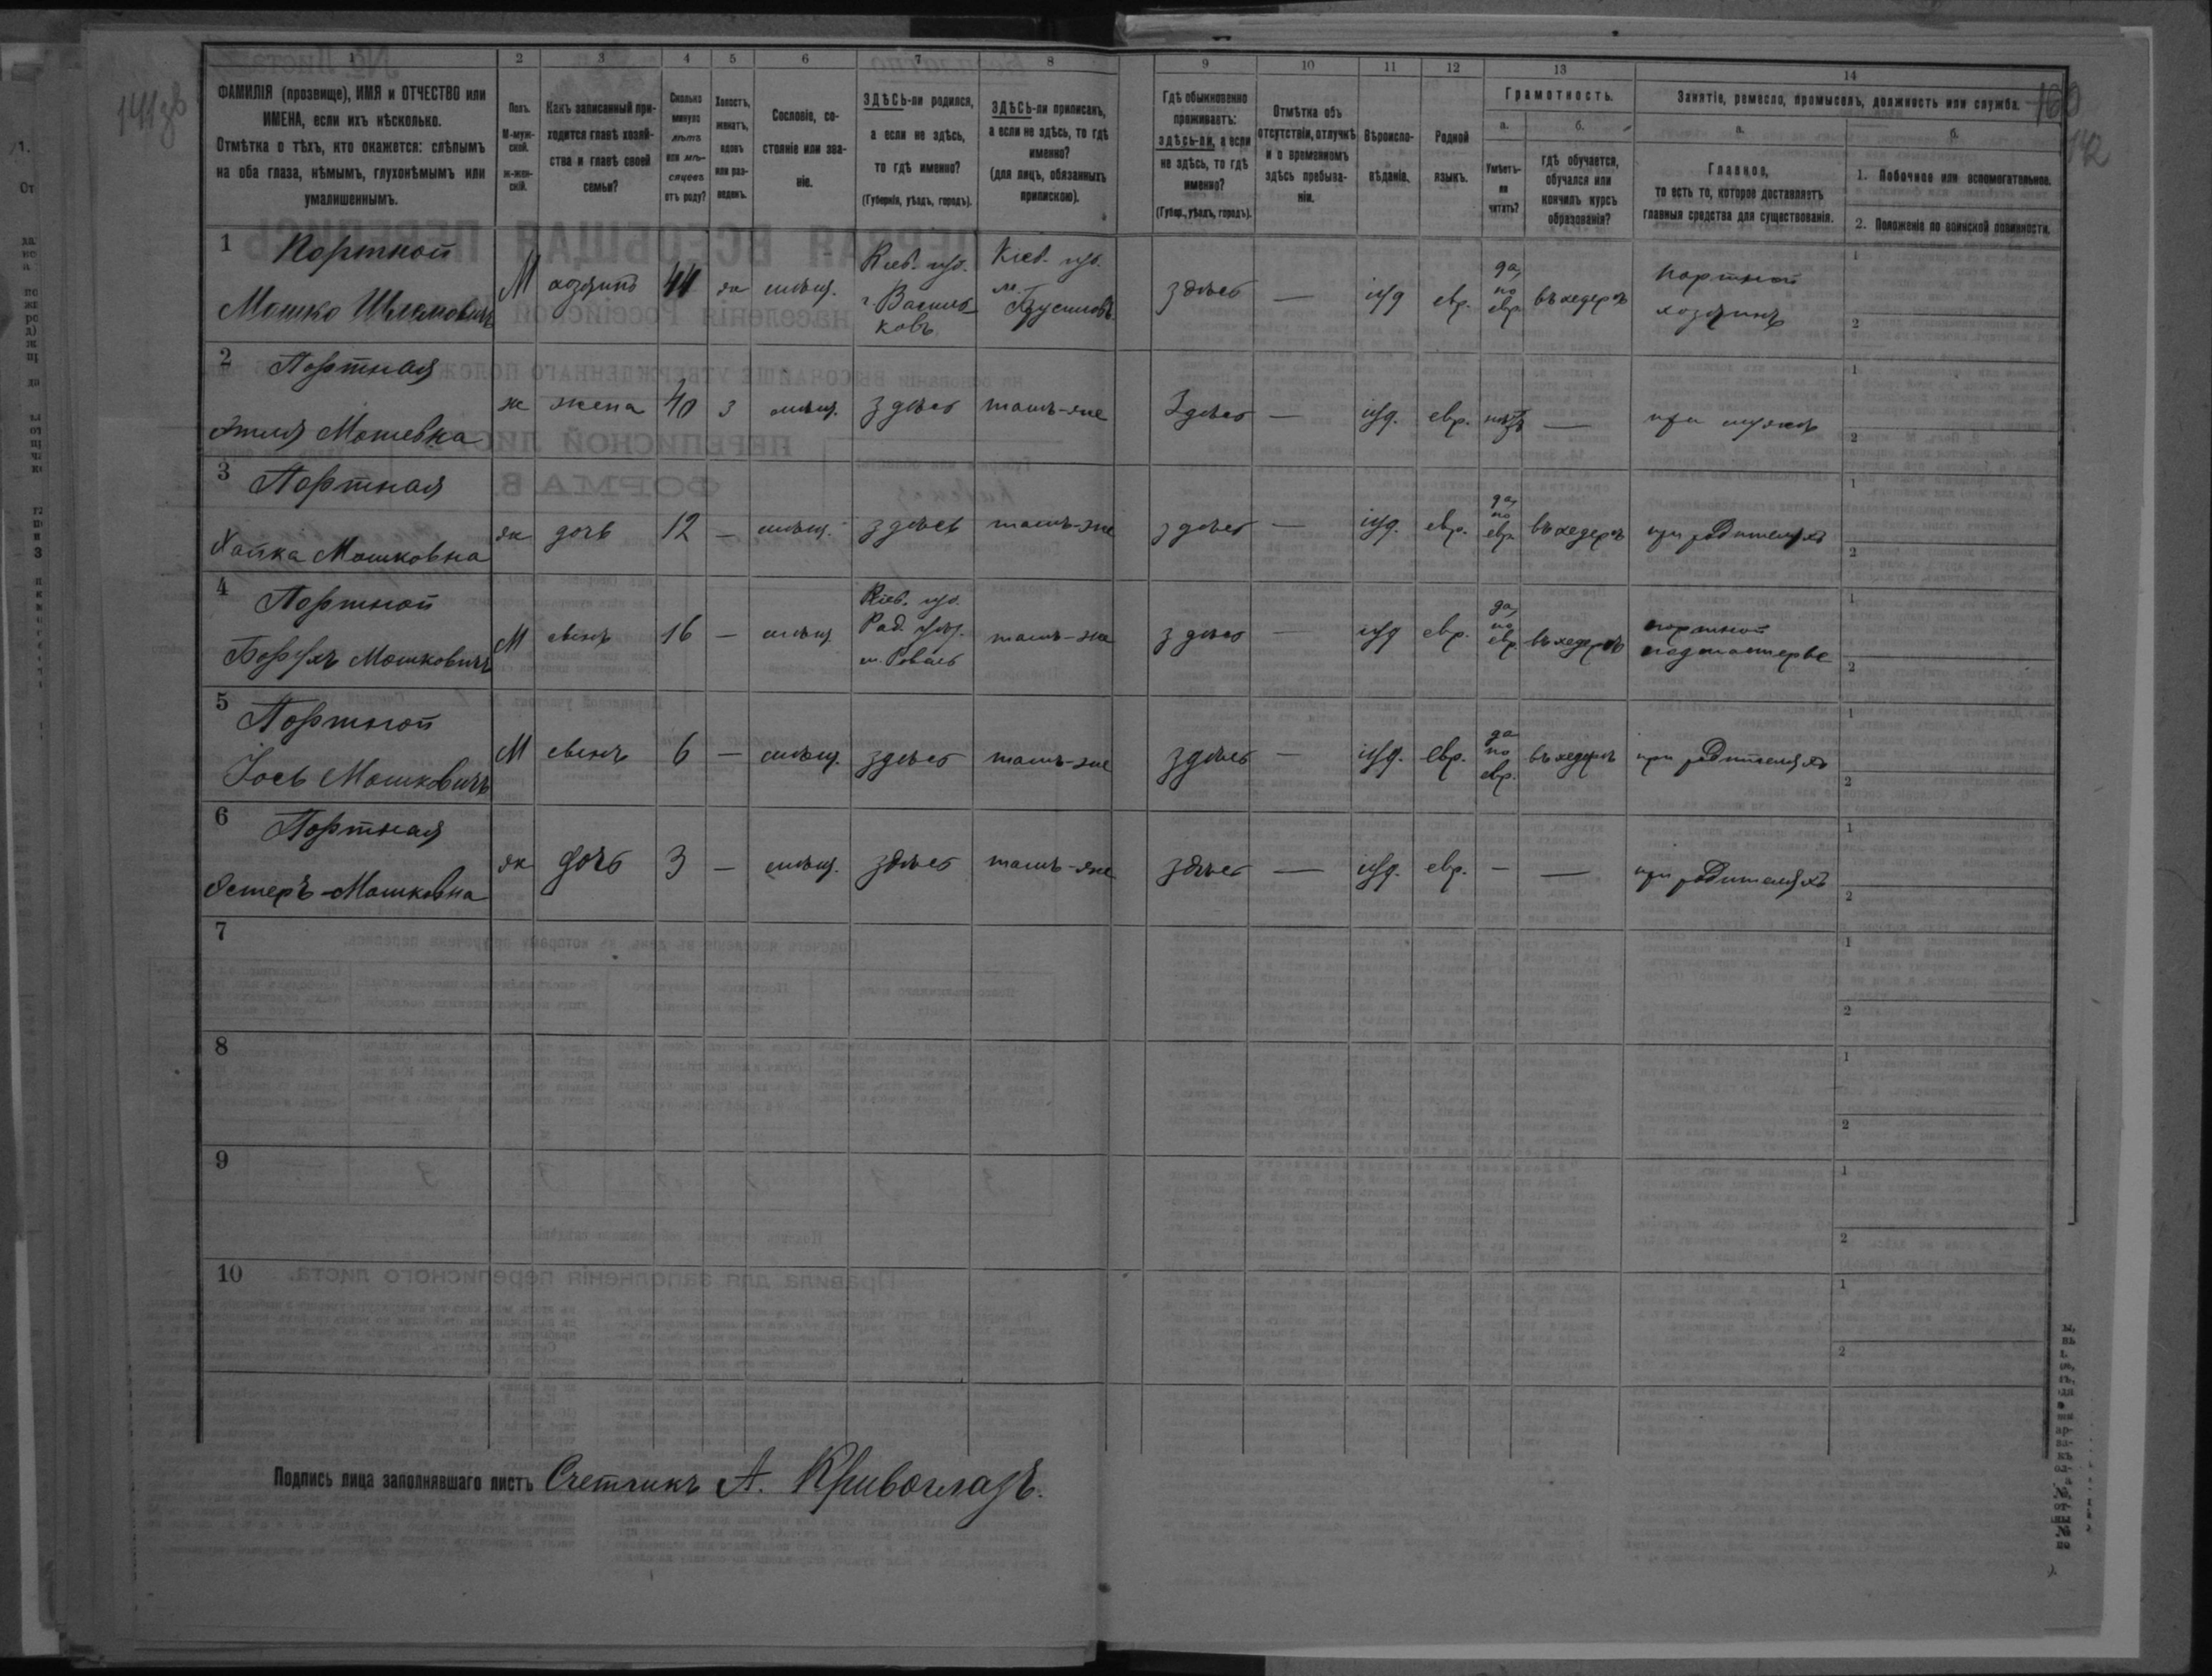 141 зв
160
142
1 2 3 4 5 6 7 8 9 10 11 12 13 14
ФАМИЛІЯ (прозвище), ИМЯ и ОТЧЕСТВО или
ИМЕНА, если ихъ нѣсколько.
Отмѣтка о тѣхъ, кто окажется: слѣпымъ
на оба глаза, нѣмымъ, глухонѣмымъ или
умалишеннымъ.
Полъ.
М-муж-
ской.
ж-жен-
скій.
Какъ записанный при-
ходится главѣ хозяй-
ства и главѣ своей
семьи?
Сколько
минуло
лѣтъ
или мѣ-
сяцевъ
отъ роду?
Холостъ,
женатъ,
вдовъ
или раз-
веденъ.
Сословіе, со-
стояніе или зва-
ніе.
ЗДѢСЬ-ли родился,
а если не здѣсь,
то гдѣ именно?
(Губернія, уѣздъ, городъ).
ЗДѢСЬ-ли приписанъ,
а если не здѣсь, то гдѣ
именно?
(для лицъ, обязанныхъ
припискою).
Гдѣ обыкновенно
проживаетъ:
здѣсь-ли, а если
не здѣсь, то гдѣ
именно?
(Губер., уѣздъ, городъ).
Отмѣтка объ
отсутствіи, отлучкѣ
и о временномъ
здѣсь пребыва-
ніи.
Вѣроиспо-
вѣданіе.
Родной
языкъ.
Грамотность.
а.
Умѣетъ-
ли
читать?
б.
гдѣ обучается,
обучался или
кончилъ курсъ
образованія?
Занятіе, ремесло, промыселъ, должность или служба.
а.
Главное,
то есть то, которое доставляетъ
главныя средства для существованія.
б.
1. Побочное или вспомогательное.
2. Положеніе по воинской повинности.
1 Портной
Мошко Шлемовичъ
М хозяинъ 44 ж мѣщ.
Кіев. губ.
г. Василь-
ковъ
Кіев. губ.
м. Брусиловъ
здѣсь — іуд евр.
да,
по
евр.
въ хедерѣ
портной
хозяинъ
1
2
2 Портная
Этля Мошевна
ж жена 40 з мѣщ. здѣсь тамъ-же здѣсь — іуд. евр. нѣтъ — при мужѣ
1
2
3 Портная
Хайка Мошковна
ж дочь 12 — мѣщ. здѣсь тамъ-же здѣсь — іуд. евр.
да,
по
евр.
въ хедерѣ при родителяхъ
1
2
4 Портной
Борухъ Мошковичъ
М сынъ 16 — мѣщ
Кіев. губ.
Рад. уѣз.
тамъ-же здѣсь — іуд евр.
да,
по
евр.
въ хедерѣ
портной
подмастерье
1
2
5 Портной
Іось Мошковичъ
М сынъ 6 — мѣщ. здѣсь тамъ-же здѣсь — іуд. евр.
да
по
евр.
въ хедерѣ при родителяхъ
1
2
6 Портная
Эстеръ-Мошковна
ж дочь 3 — мѣщ. здѣсь тамъ-же здѣсь — іуд. евр. — — при родителяхъ
1
2
7
1
2
8
1
2
9
1
2
10
1
2
Подпись лица заполнявшаго листъ Счетчикъ А. Кривоглазъ.